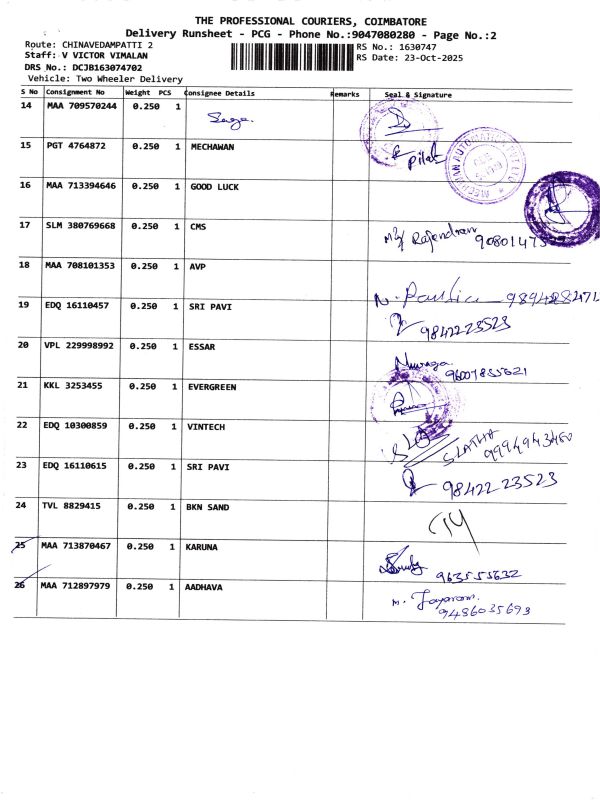 THE PROFESSIONAL COURIERS, COIMBATORE
Delivery Runsheet - PCG - Phone No.:9047080280 - Page No.:2
Route: CHINAVEDAMPATTI 2 RS No.: 1630747
Staff: V VICTOR VIMALAN RS Date: 23-Oct-2025
DRS No.: DCJB163074702
Vehicle: Two Wheeler Delivery
S No Consignment No Weight PCS Consignee Details Remarks Seal & Signature
14 MAA 709570244 0.250 1
15 PGT 4764872 0.250 1 MECHAWAN
Pilat
16 MAA 713394646 0.250 1 GOOD LUCK
17 SLM 380769668 0.250 1 CMS
Rajendran
18 MAA 708101353 0.250 1 AVP
19 EDQ 16110457 0.250 1 SRI PAVI
9842223523
20 VPL 229998992 0.250 1 ESSAR
21 KKL 3253455 0.250 1 EVERGREEN
22 EDQ 10300859 0.250 1 VINTECH
SLATHA
23 EDQ 16110615 0.250 1 SRI PAVI
98422 23523
24 TVL 8829415 0.250 1 BKN SAND
25 MAA 713870467 0.250 1 KARUNA
963555632
26 MAA 712897979 0.250 1 AADHAVA
M. Jayaram.
9486035693